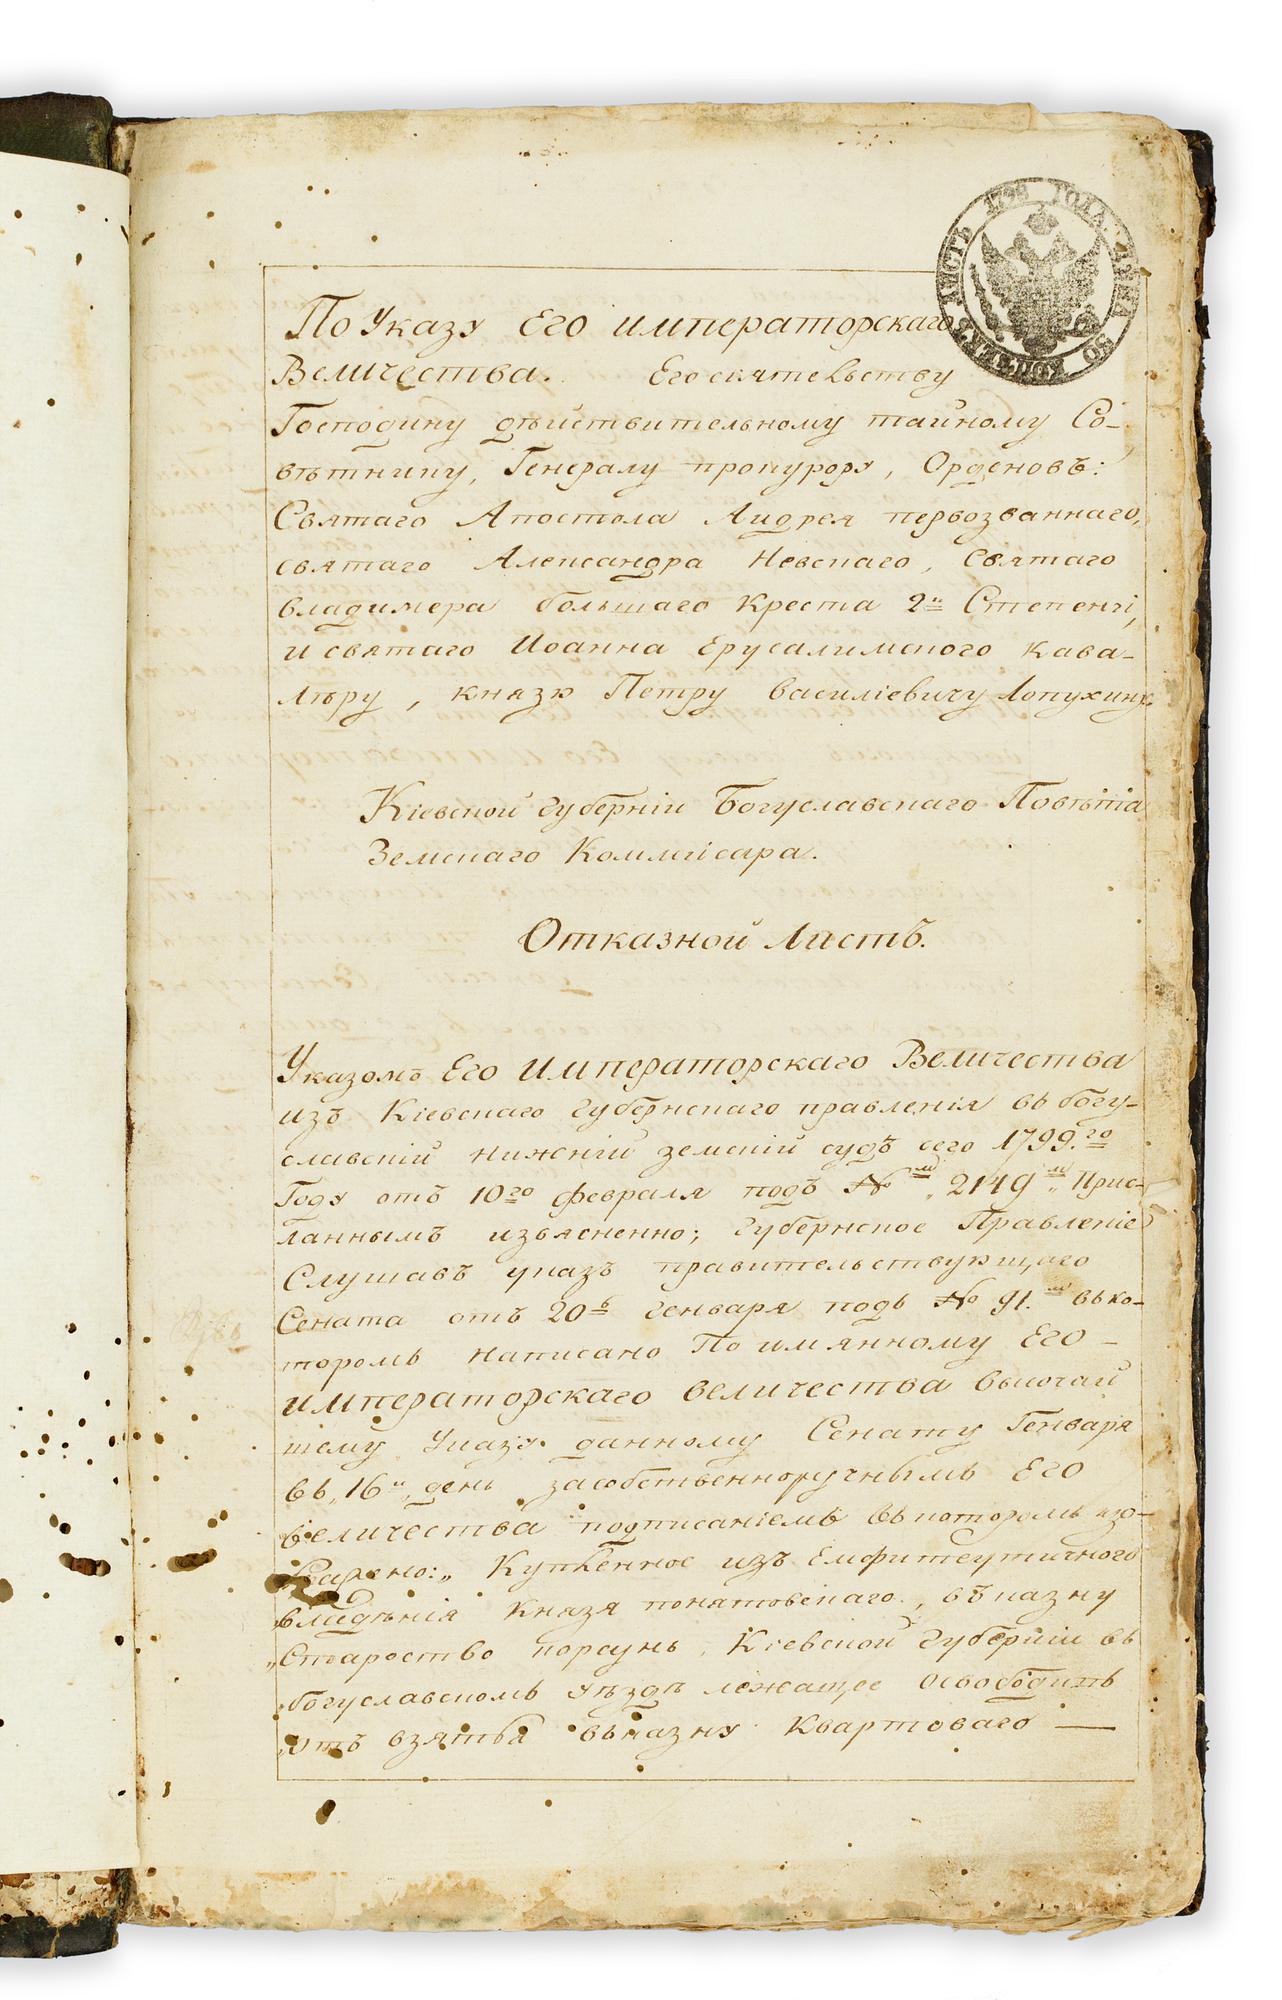 ЛИСТЪ 1798 ГОДА ЦѢНА 30 КОПѢЕКЪ
По Указу Его императорскаго
Величества. Его сиятельству
Господину дѣйствительному тайному Со-
вѣтнику, Генералу прокурору, Орденовъ:
Святаго Апостола Андрея первозваннаго,
святаго Александра Невскаго, Святаго
владимера большаго креста 2й Степени,
и святаго Иоанна Ерусалимского кава-
лѣру, князю Петру василіевичу Лопухину.
Кіевской губерніи Богуславскаго Повѣта
Земскаго Коммисара.
Отказной Листъ.
Указомъ Его Императорскаго Величества
изъ Кіевскаго губернскаго правленія въ богу-
славскій нижній земскій судъ сего 1799.го
Году отъ 10го февраля подъ №м. 2149м. Прис-
ланнымъ изъясненно; губернское Правленіе
Слушавъ указъ правительствующаго
Сената отъ 20ъ Генваря подъ № 91.м въ ко-
торомъ написано По имянному Его -
императорскаго величества высочай
шему Указу данному Сенату Генваря
въ „16й„ день засобственноручнымъ Его
величества подписаніемъ въ которомъ изо-
бражено: „ Купленное изъ Емфитеутичного
владѣнія Князя понятовскаго, въ казну
„Староство корсунь, Кіевской губерніи въ
„богуславскомъ уѣздѣ лежащее освободить
„отъ взятья въказну квартоваго —